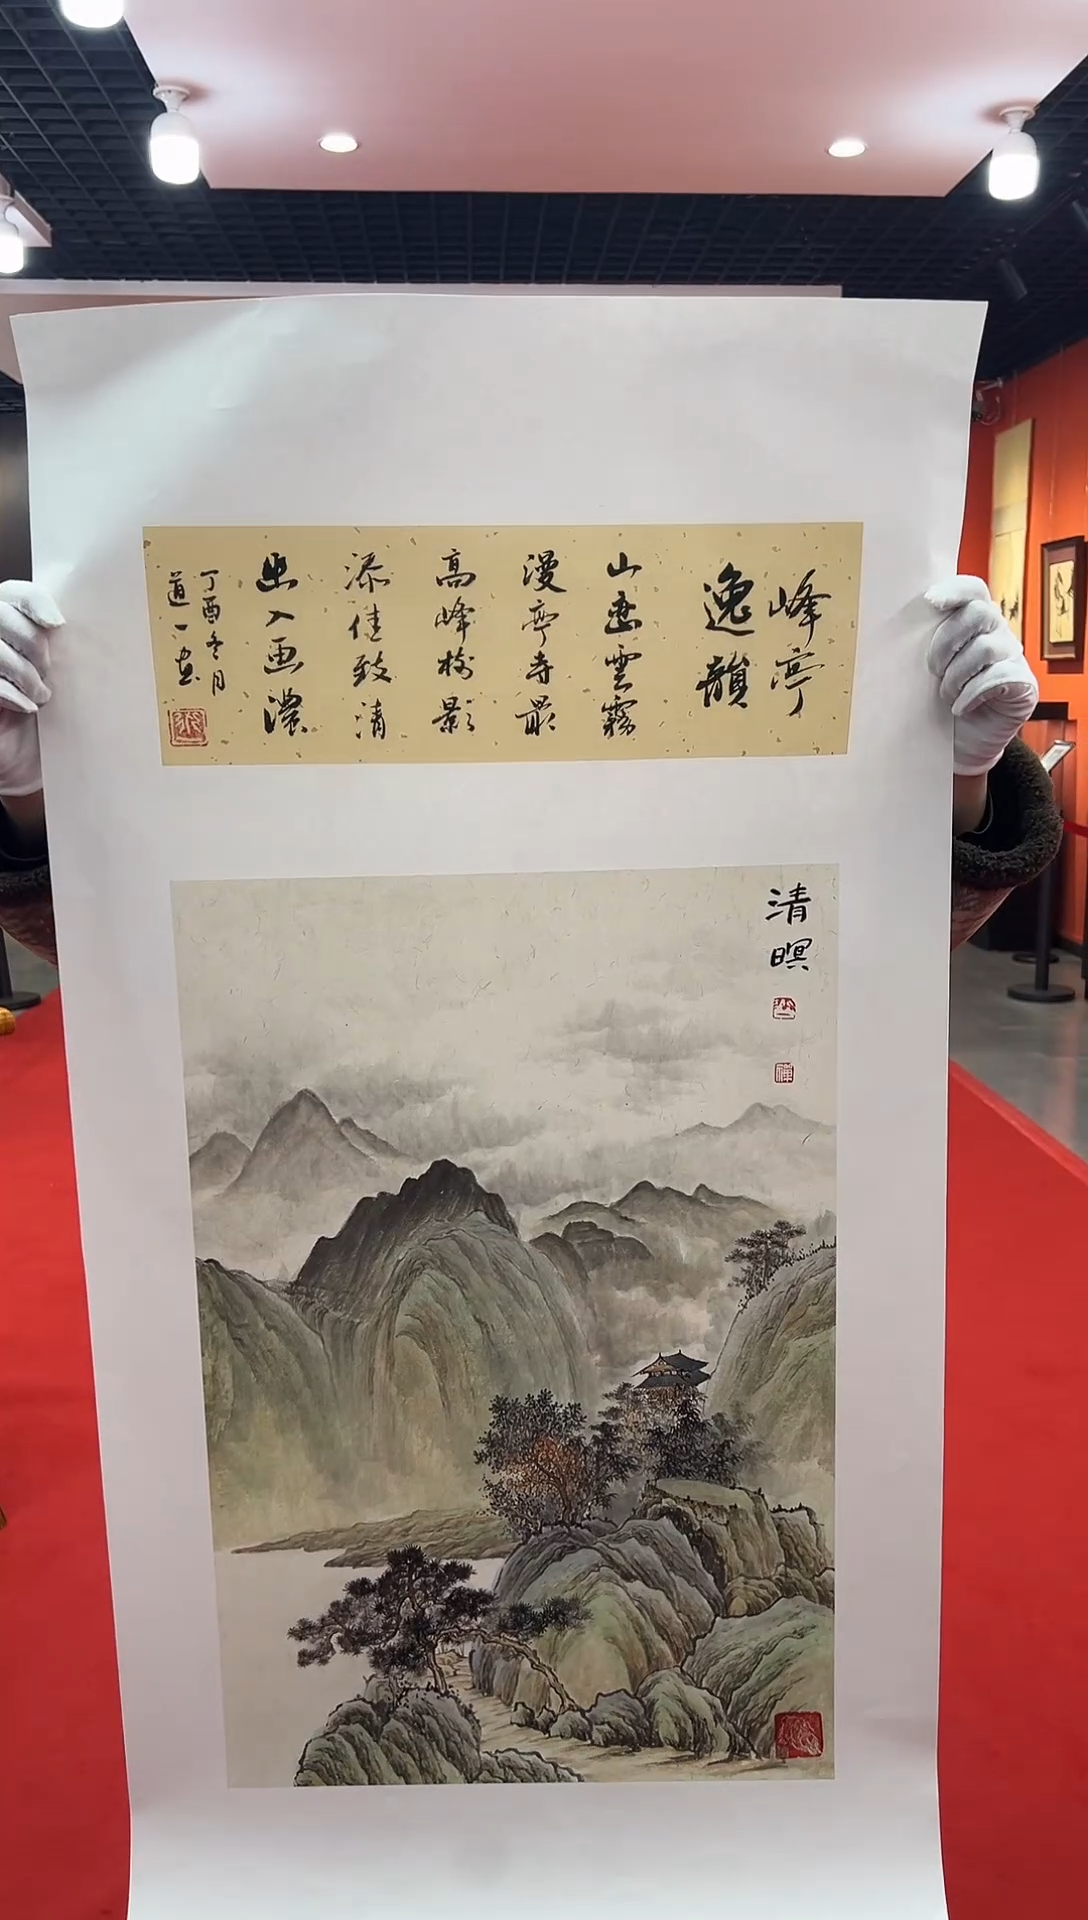 峰亭
逸韻
山峦雲霧
漫亭寺最
高峰樹影
添佳致清
幽入画濃
丁酉冬月
道一
清暝